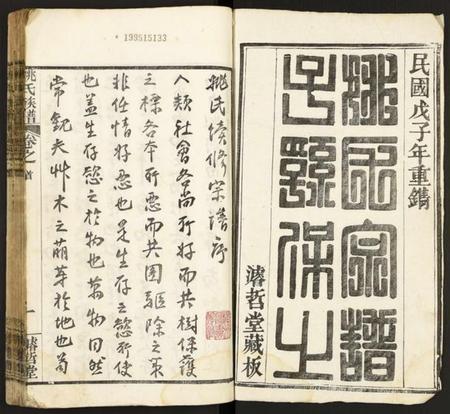 民國戊子年重鐫
姚氏宗譜
子孫保之
濬哲堂藏板
* 199515133
姚氏續修宗譜序
人類社會各尚所好而共樹保護
之標各本所惡而共圖驅除之策
非任情好惡也是生存之慾所使
也蓋生存慾之於物也萬物同然
常觀夫艸木之萌芽於地也茍
姚氏族譜
卷之首
一
濬哲堂